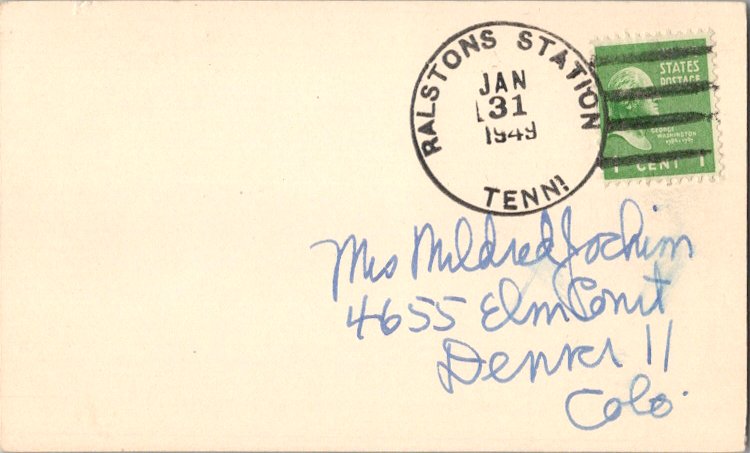 RALSTONS STATION
JAN
31
1949
TENN.
STATES
POSTAGE
GEORGE
WASHINGTON
1 CENT 1
Mrs Mildred Jochim
4655 Elm Court
Denver 11
Colo.